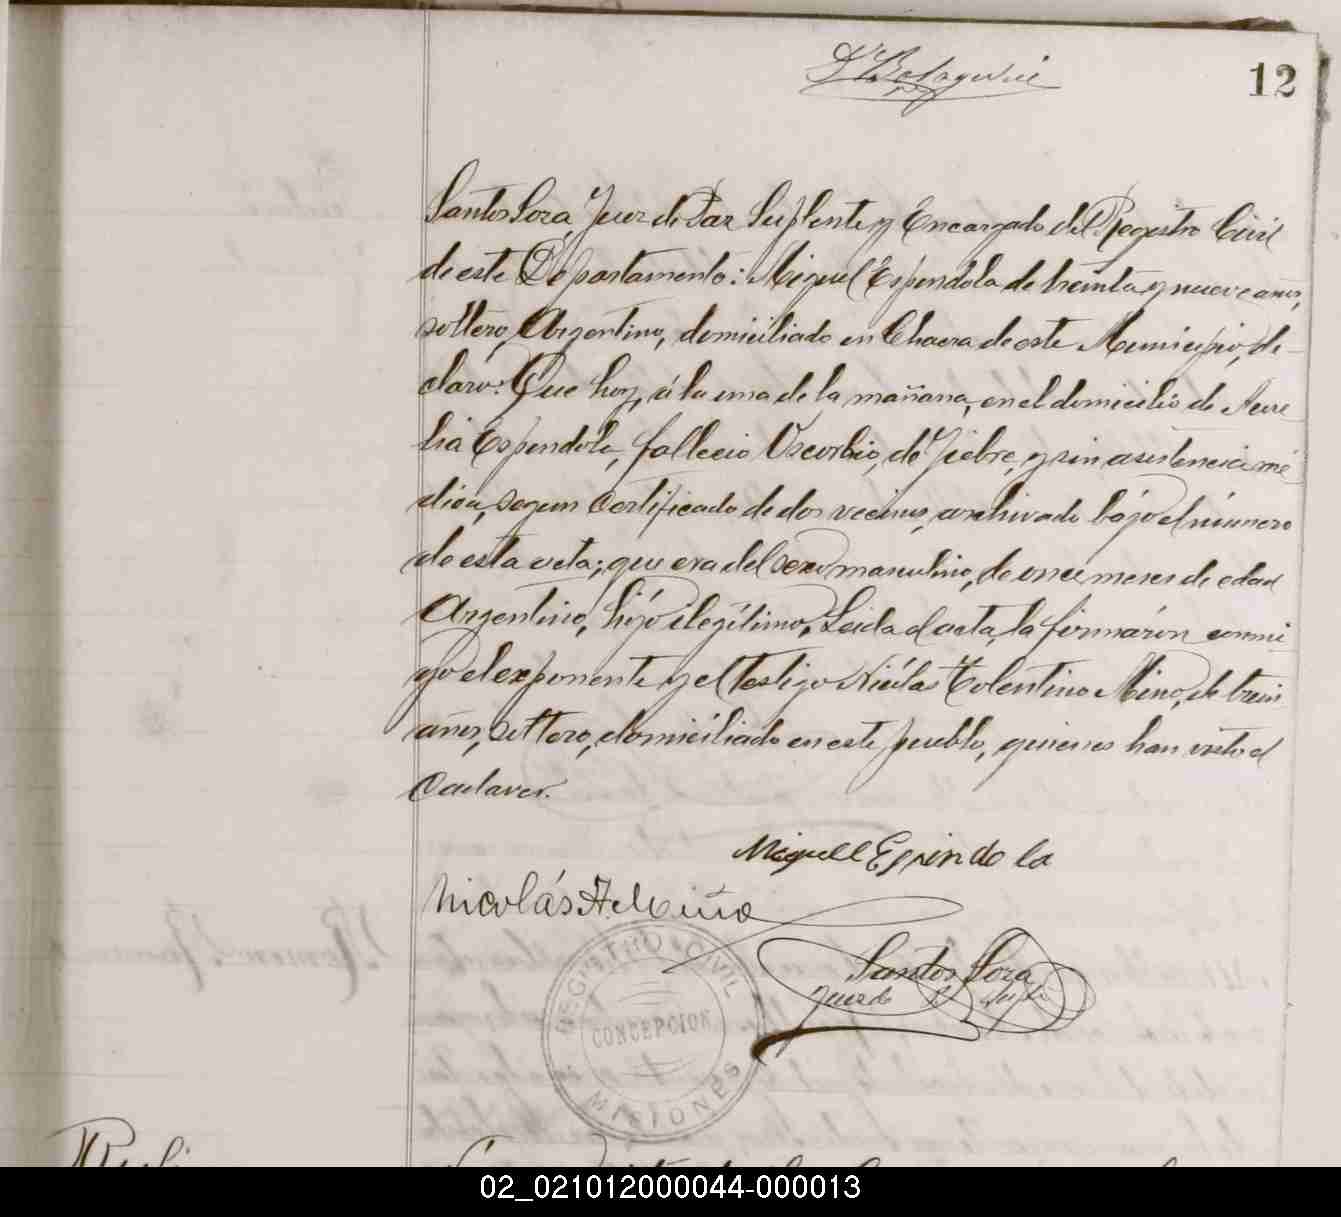 12
Santos Lora, Juez de Paz Suplente y Encargado del Registro Civil
de este Departamento: Miguel Espendola de treinta y nueve años,
soltero, Argentino, domiciliado en Chacra de este Municipio, de-
claro: Que hoy, á la una de la mañana, en el domicilio de Aure
lia Espendola, fallecio de fiebre, y sin asistencia mé
dica, segun certificado de dos vecinos, archivado bájo el número
de esta acta; que era del sexo masculino, de once meses de edad
Argentino, hijo ilegítimo. Leida el acta, la firmarón conmi
go el exponente y el testigo Nicólas Tolentino Mino, de trein
años, soltero, domiciliado en este pueblo, quienes han visto el
Cadaver.
Miguell Espindola
Nicolás T. Miño
Santos Lora
Juez de P. Supte
REGISTRO CIVIL
CONCEPCION
MISIONES
02_021012000044-000013